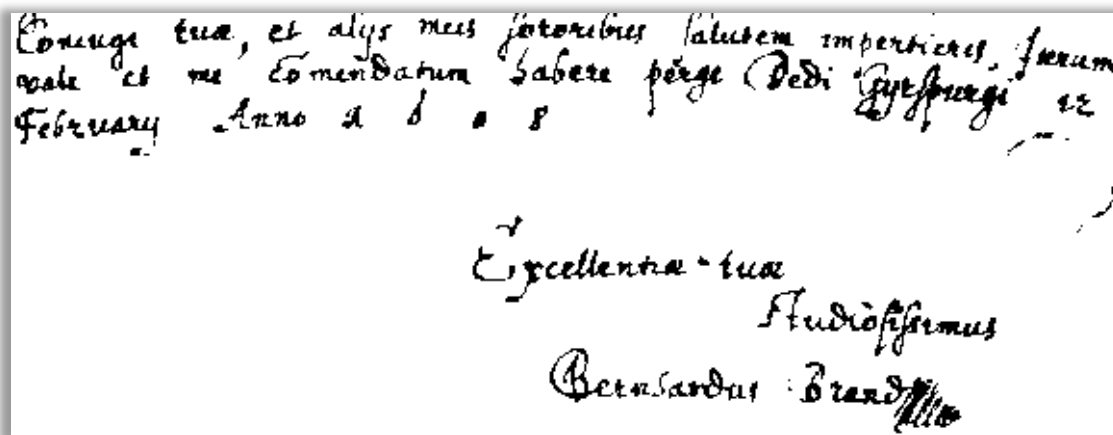 Coniugi tuæ, et alys meis sororibus salutem impertieris, Iterum
vale et me Comendatum habere perge Dedi Gyrspurgi 12
February Anno 1 6 0 8
Excellentiæ tuæ
Studiosissimus
Bernhardus Brand